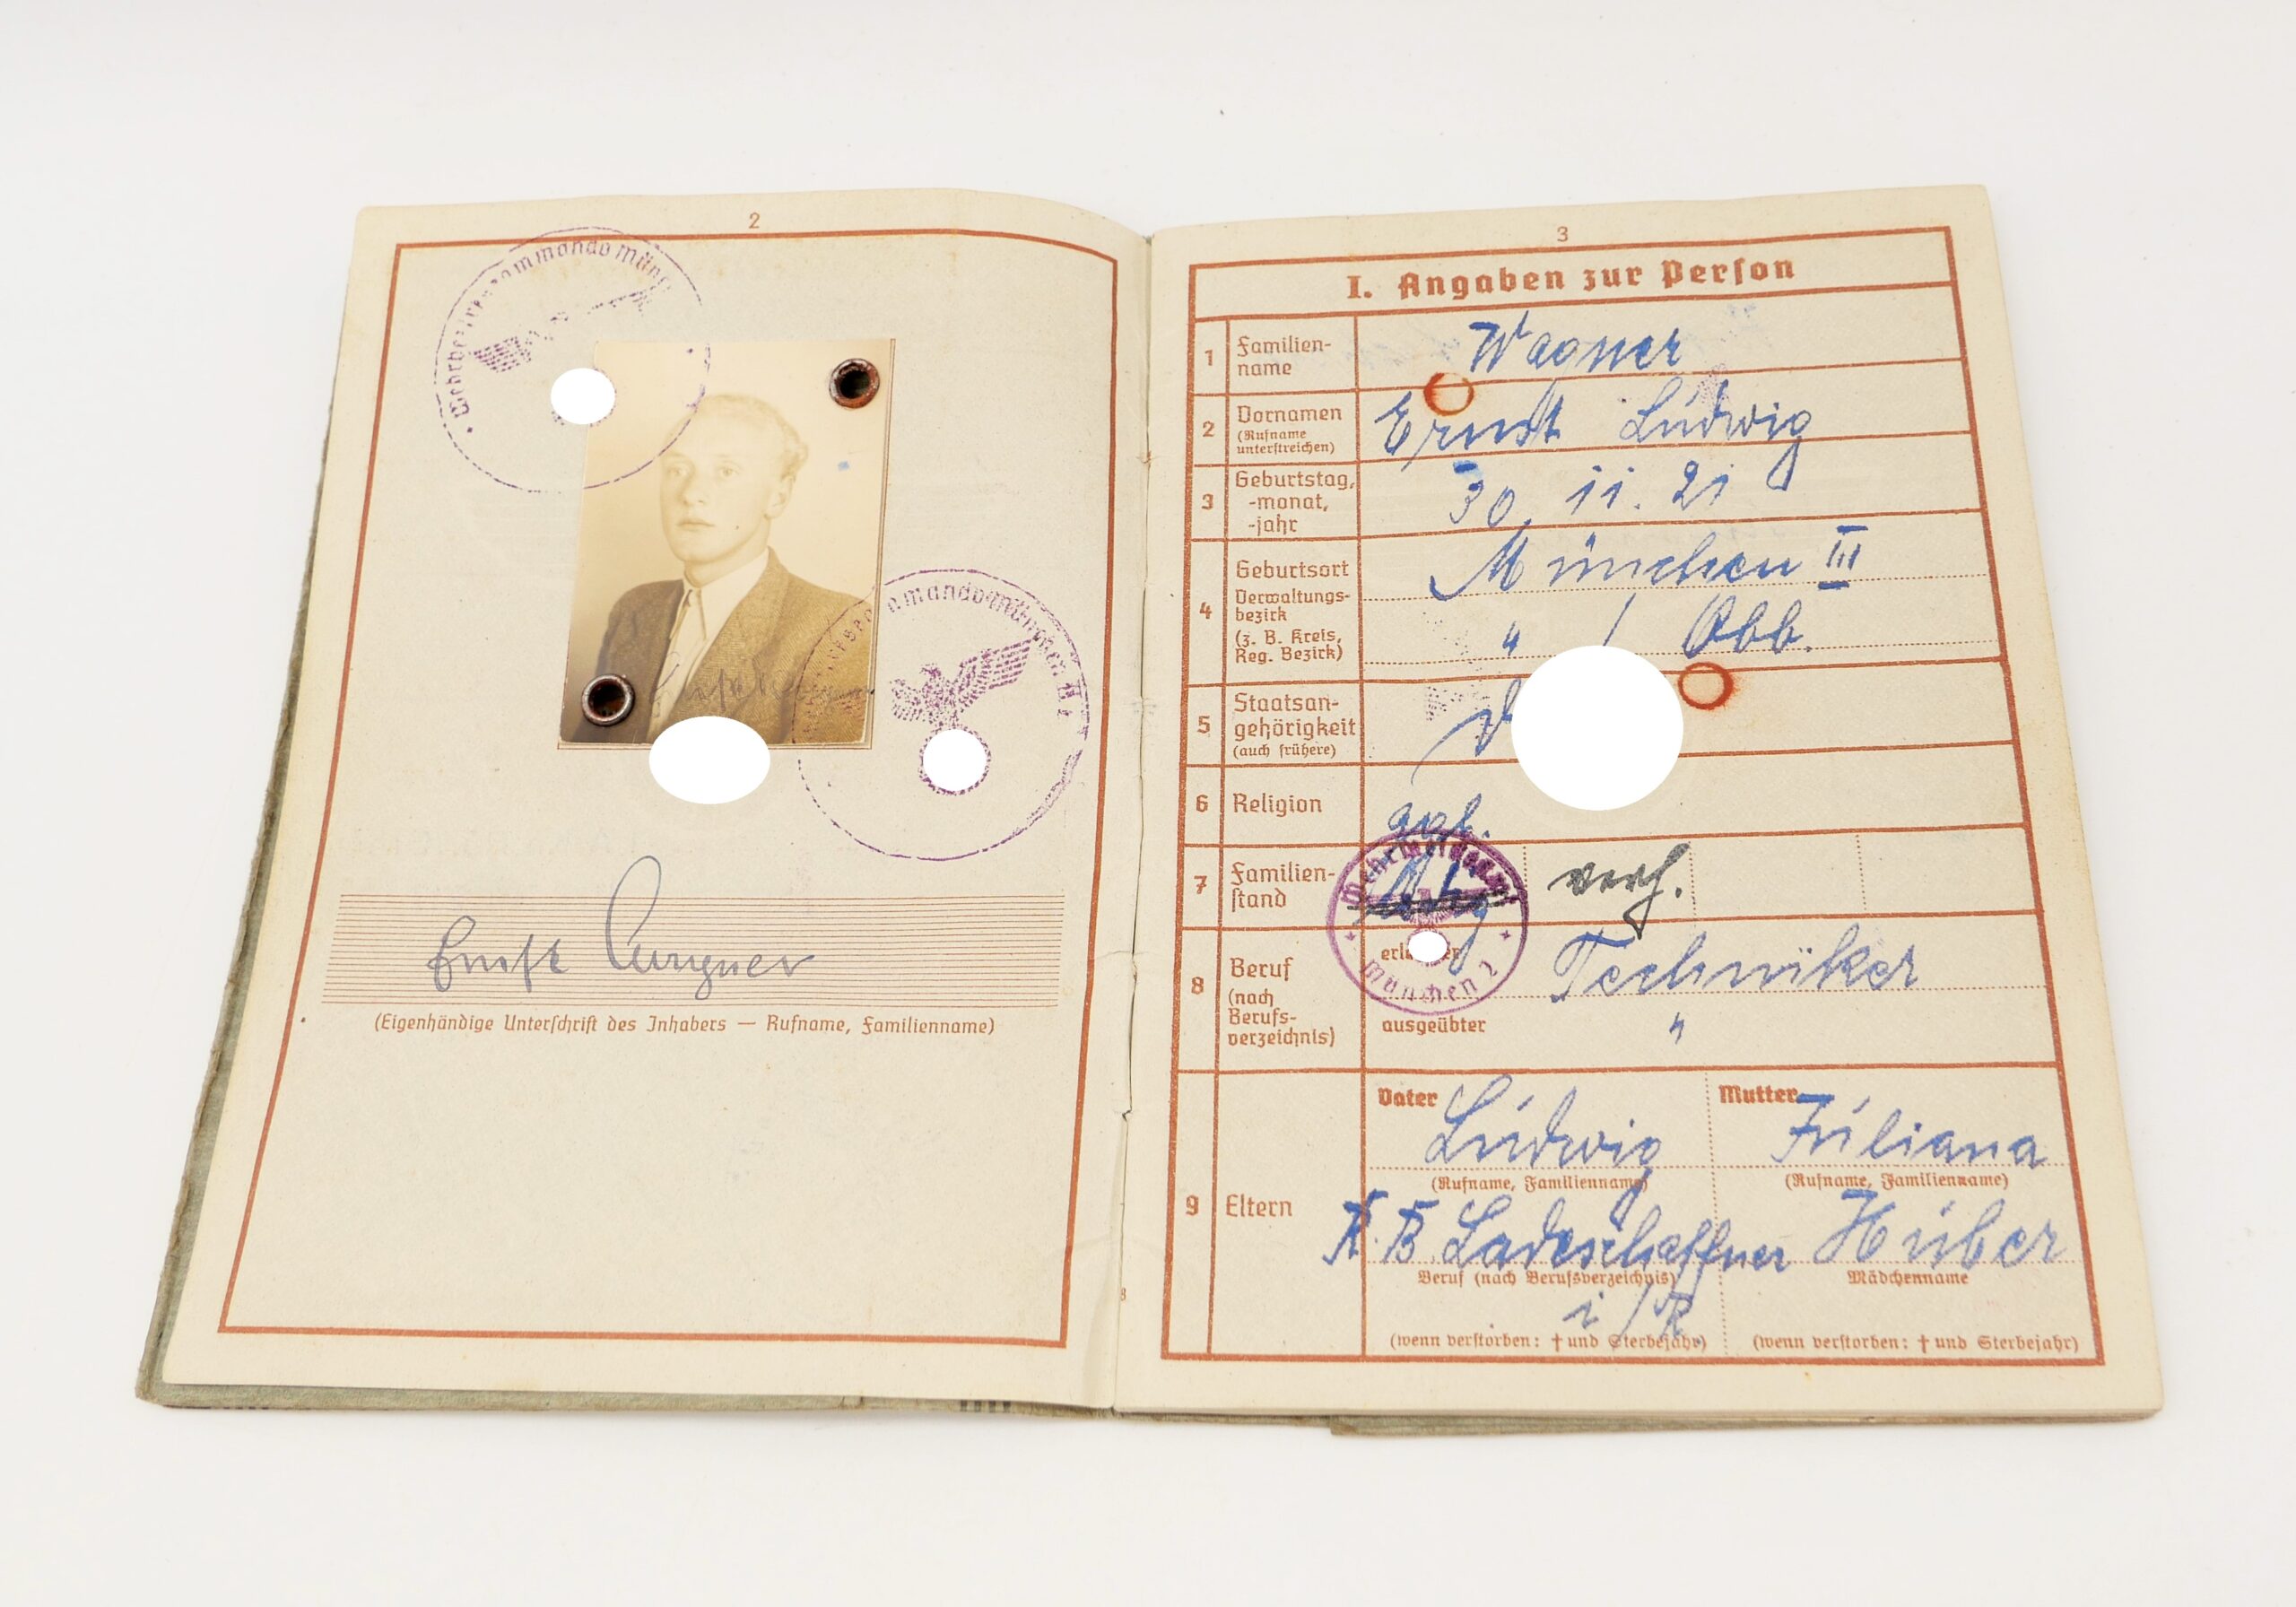 2
Wehrbezirkskommando Mün
mmando München II
Ernst Wagner
(Eigenhändige Unterschrift des Inhabers — Rufname, Familienname)
3
I. Angaben zur Person
1 Familien-
name
Wagner
2 Vornamen
(Rufname
unterstreichen)
Ernst Ludwig
3 Geburtstag,
-monat,
-jahr
30. 11. 21
4 Geburtsort
München III
Verwaltungs-
bezirk
(z. B. Kreis,
Reg. Bezirk)
" / Obb.
5 Staatsan-
gehörigkeit
(auch frühere)
6 Religion
ggl.
7 Familien-
stand
verh.
Wehrmeldeamt
München 2
8 Beruf
(nach
Berufs-
verzeichnis)
Techniker
ausgeübter "
9 Eltern
Vater Mutter
Ludwig Juliana
(Rufname, Familienname) (Rufname, Familienname)
R. B. Ladeschaffner Huber
Beruf (nach Berufsverzeichnis) Mädchenname
i/R.
(wenn verstorben: † und Sterbejahr) (wenn verstorben: † und Sterbejahr)
8